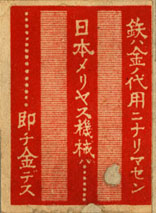 鉄ハ金ノ代用ニナリマセン
日本メリヤス機械ハ……
……即チ金デス